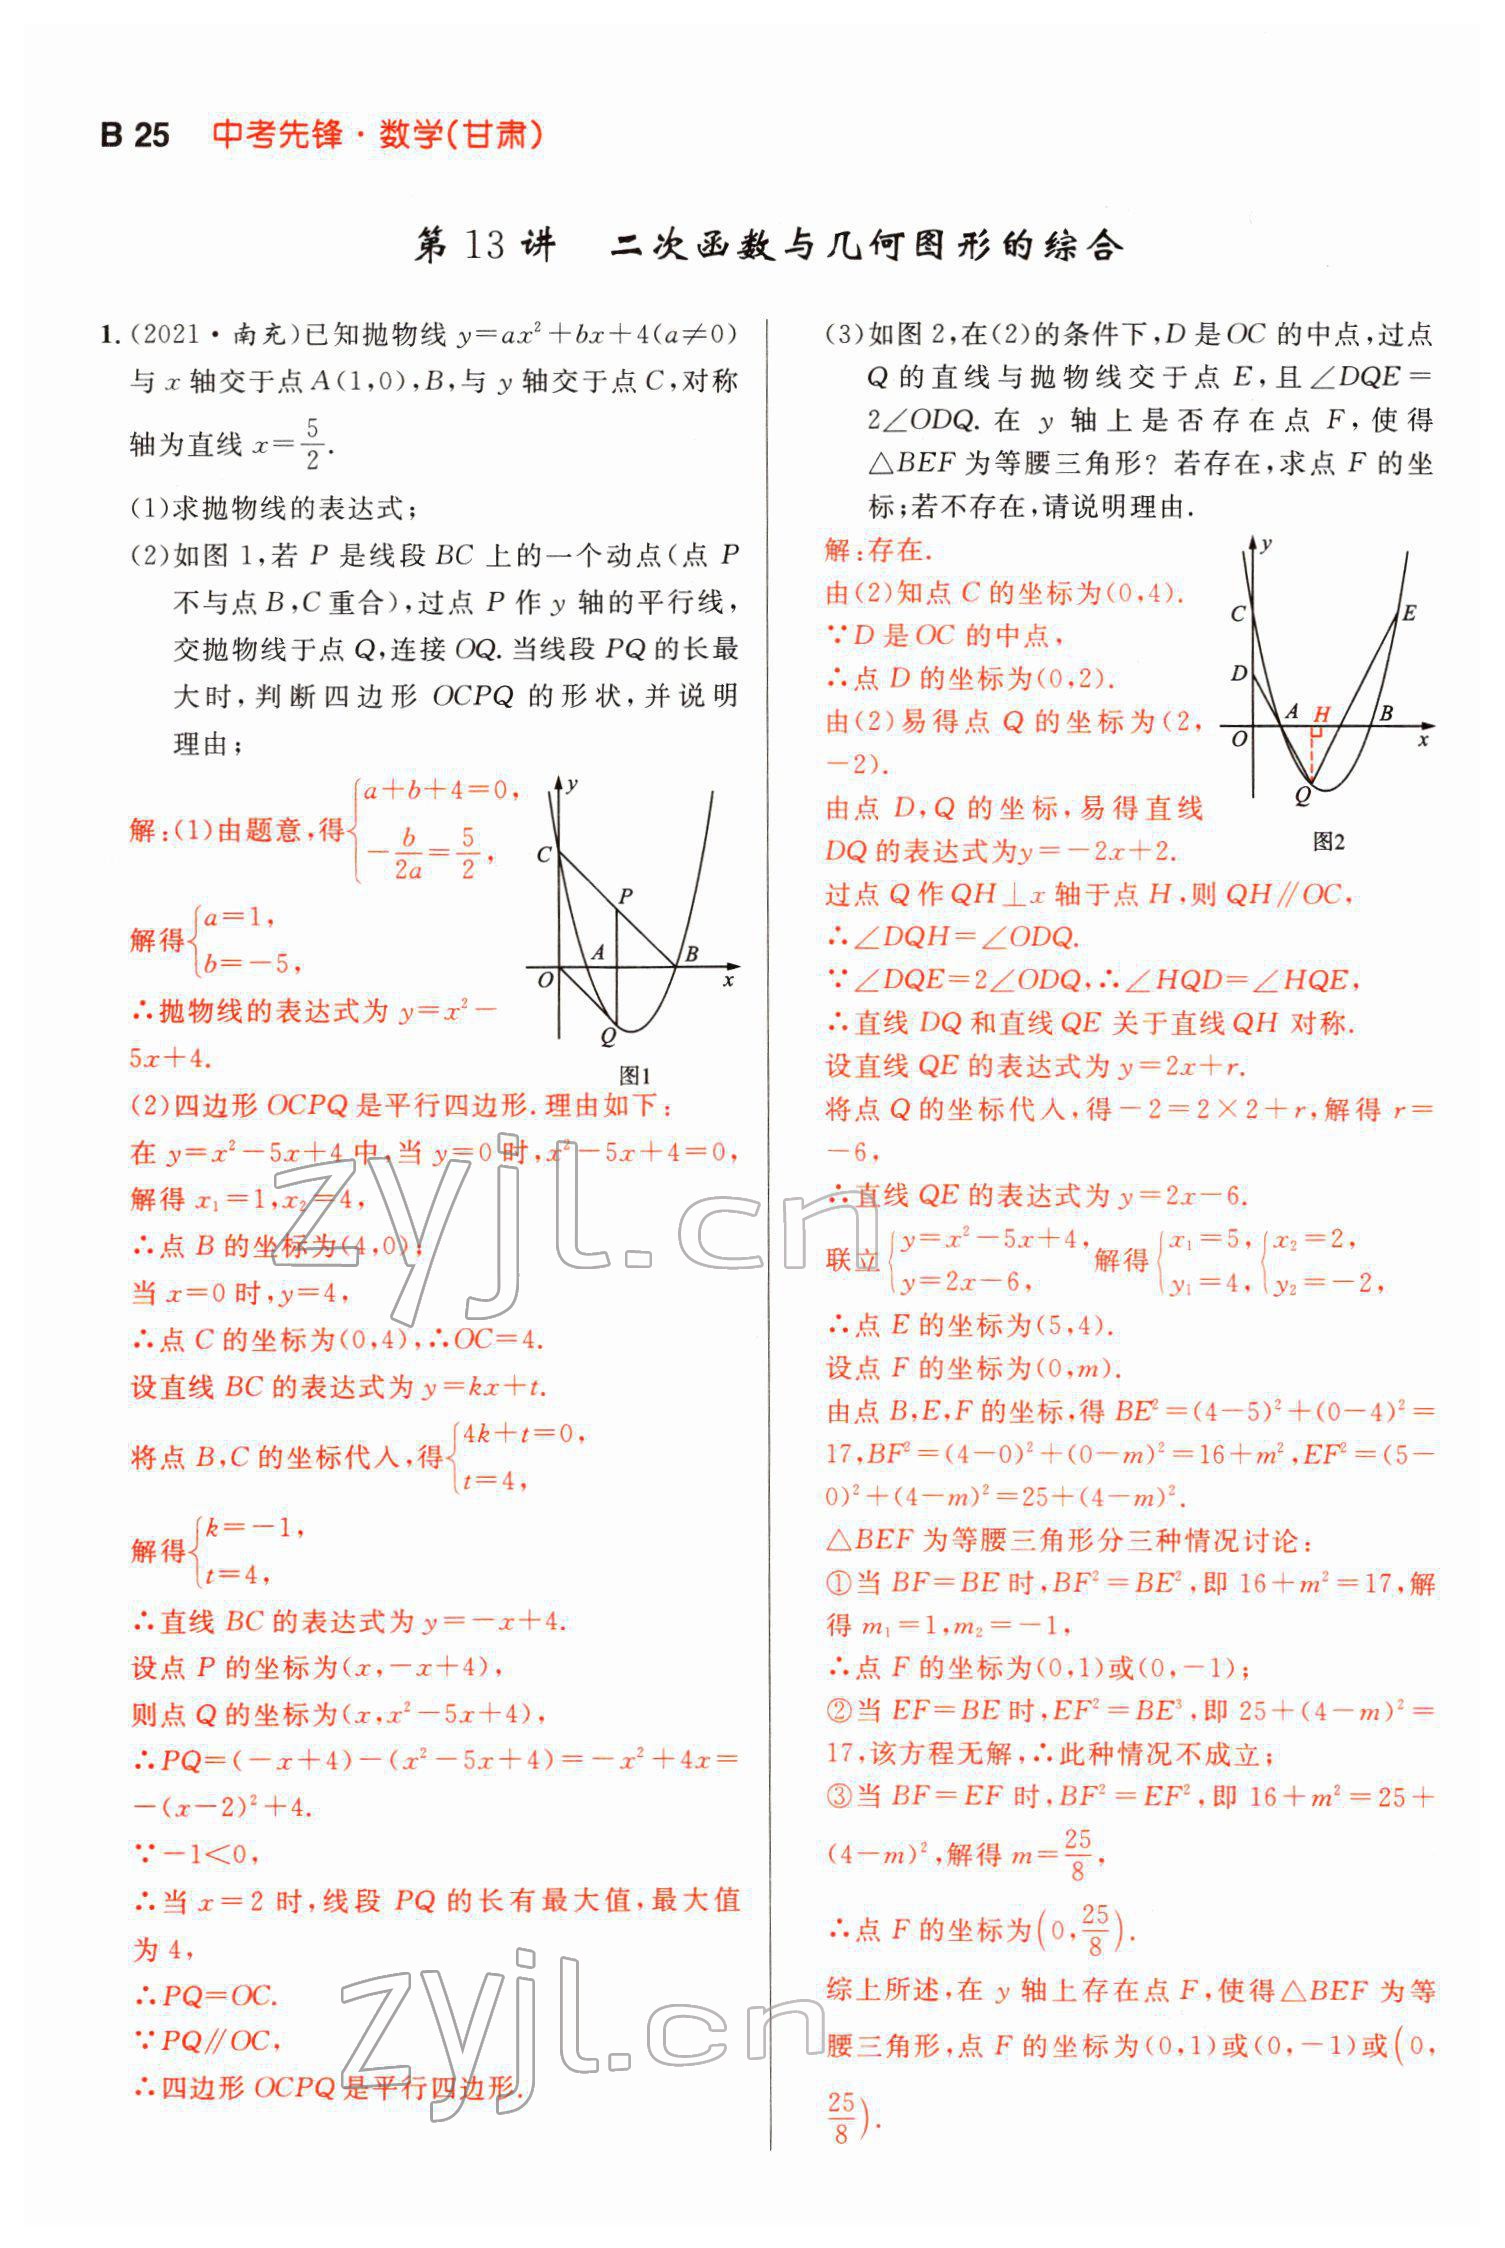 B 25 中考先锋·数学(甘肃)
第13讲 二次函数与几何图形的综合
1.(2021·南充)已知抛物线 y=ax²+bx+4(a≠0)
与 x 轴交于点 A(1,0),B,与 y 轴交于点 C,对称
轴为直线 x=5/2.
(1)求抛物线的表达式;
(2)如图 1,若 P 是线段 BC 上的一个动点(点 P
不与点 B,C 重合),过点 P 作 y 轴的平行线,
交抛物线于点 Q,连接 OQ. 当线段 PQ 的长最
大时,判断四边形 OCPQ 的形状,并说明
理由;
解:(1)由题意,得{a+b+4=0,
-b/2a=5/2,
解得{a=1,
b=-5,
∴抛物线的表达式为 y=x²-
5x+4.
y
C
P
A
B
O
x
Q
图1
(2)四边形 OCPQ 是平行四边形. 理由如下:
在 y=x²-5x+4 中,当 y=0 时,x²-5x+4=0,
解得 x₁=1,x₂=4,
∴点 B 的坐标为(4,0);
当 x=0 时,y=4,
∴点 C 的坐标为(0,4),∴OC=4.
设直线 BC 的表达式为 y=kx+t.
将点 B,C 的坐标代入,得{4k+t=0,
t=4,
解得{k=-1,
t=4,
∴直线 BC 的表达式为 y=-x+4.
设点 P 的坐标为(x,-x+4),
则点 Q 的坐标为(x,x²-5x+4),
∴PQ=(-x+4)-(x²-5x+4)=-x²+4x=
-(x-2)²+4.
∵-1<0,
∴当 x=2 时,线段 PQ 的长有最大值,最大值
为 4,
∴PQ=OC.
∵PQ∥OC,
∴四边形 OCPQ 是平行四边形.
(3)如图 2,在(2)的条件下,D 是 OC 的中点,过点
Q 的直线与抛物线交于点 E,且∠DQE=
2∠ODQ. 在 y 轴上是否存在点 F,使得
△BEF 为等腰三角形? 若存在,求点 F 的坐
标;若不存在,请说明理由.
解:存在.
由(2)知点 C 的坐标为(0,4).
∵D 是 OC 的中点,
∴点 D 的坐标为(0,2).
由(2)易得点 Q 的坐标为(2,
-2).
由点 D,Q 的坐标,易得直线
DQ 的表达式为y=-2x+2.
y
C
E
D
A
H
B
O
x
Q
图2
过点 Q 作 QH⊥x 轴于点 H,则 QH∥OC,
∴∠DQH=∠ODQ.
∵∠DQE=2∠ODQ,∴∠HQD=∠HQE,
∴直线 DQ 和直线 QE 关于直线 QH 对称.
设直线 QE 的表达式为 y=2x+r.
将点 Q 的坐标代入,得-2=2×2+r,解得 r=
-6,
∴直线 QE 的表达式为 y=2x-6.
联立{y=x²-5x+4, 解得{x₁=5, {x₂=2,
y=2x-6, y₁=4, y₂=-2,
∴点 E 的坐标为(5,4).
设点 F 的坐标为(0,m).
由点 B,E,F 的坐标,得 BE²=(4-5)²+(0-4)²=
17,BF²=(4-0)²+(0-m)²=16+m²,EF²=(5-
0)²+(4-m)²=25+(4-m)².
△BEF 为等腰三角形分三种情况讨论:
①当 BF=BE 时,BF²=BE²,即 16+m²=17,解
得 m₁=1,m₂=-1,
∴点 F 的坐标为(0,1)或(0,-1);
②当 EF=BE 时,EF²=BE³,即 25+(4-m)²=
17,该方程无解,∴此种情况不成立;
③当 BF=EF 时,BF²=EF²,即 16+m²=25+
(4-m)²,解得 m=25/8,
∴点 F 的坐标为(0,25/8).
综上所述,在 y 轴上存在点 F,使得△BEF 为等
腰三角形,点 F 的坐标为(0,1)或(0,-1)或(0,
25/8).
zyjl.cn
zyjl.cn